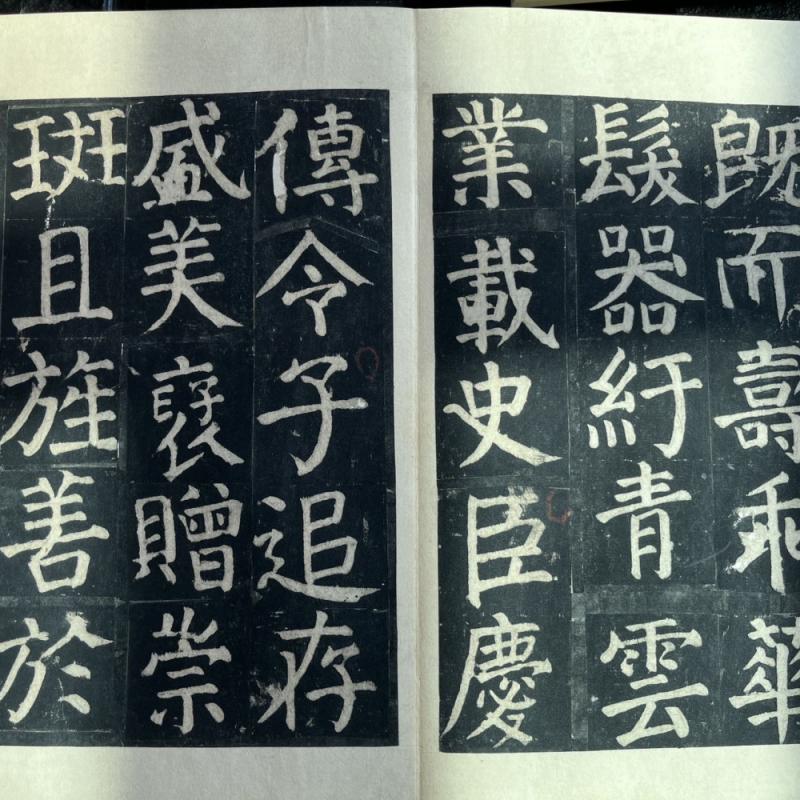 既而壽乖華
髮器紆青雲
業載史臣慶
傳令子追存
盛美褒贈崇
斑且旌善於